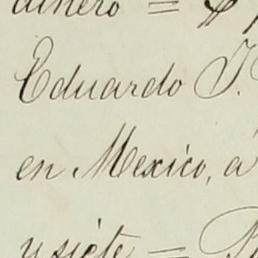 dinero = $
Eduardo J.
en Mexico, á
y siete =